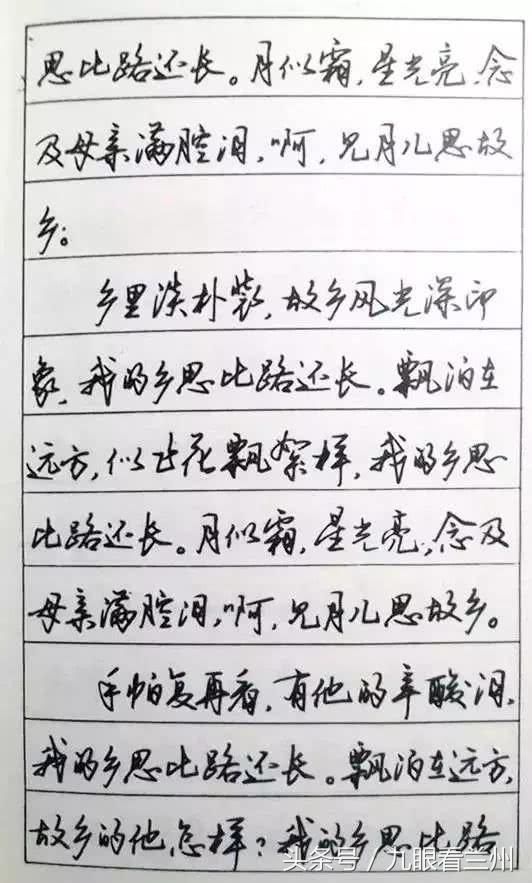 思比路还长。月似霜，星光亮，念
及母亲满腔泪，啊，见月儿思故
乡。
乡里淡朴装，故乡风光深印
象，我的乡思比路还长。飘泊在
远方，似花飘絮样，我的乡思
比路还长。月似霜，星光亮，念及
母亲满腔泪，啊，见月儿思故乡。
手帕复再看，有他的辛酸泪，
我的乡思比路还长。飘泊在远方，
故乡的他怎样？我的乡思比路
头条号／九眼看兰州